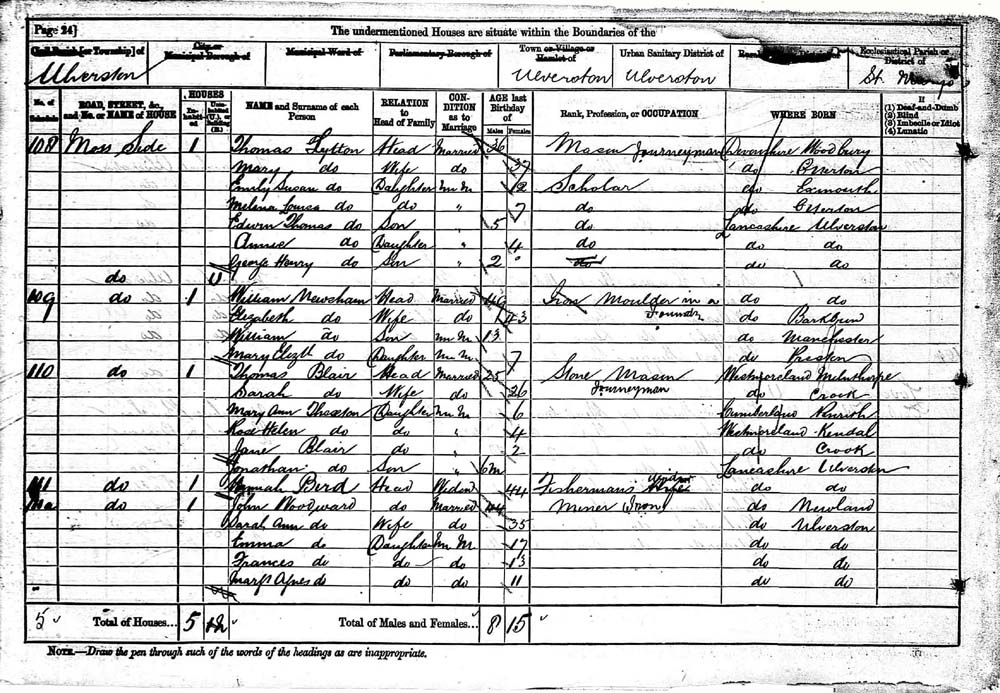 Page 24]
The undermentioned Houses are situate within the Boundaries of the
Civil Parish [or Township] of
City or Municipal Borough of
Municipal Ward of
Parliamentary Borough of
Town or Village or Hamlet of
Urban Sanitary District of
Ecclesiastical Parish or District of
Ulverston Ulverston Ulverston St.
No. of Schedule
ROAD, STREET, &c., and No. or NAME of HOUSE
HOUSES
Inhabited
Uninhabited (U.), or Building (B.)
NAME and Surname of each Person
RELATION to Head of Family
CONDITION as to Marriage
AGE last Birthday of
Males Females
Rank, Profession, or OCCUPATION
WHERE BORN
If
(1) Deaf-and-Dumb
(2) Blind
(3) Imbecile or Idiot
(4) Lunatic
108 Moss Side 1 Thomas Head Married 36 Mason Journeyman Devonshire Woodbury
Mary do Wife do 37 do Otterton
Emily Susan do Daughter Un M. 12 Scholar do Exmouth
Louisa do do " 7 do do Otterton
Edwin Thomas do Son " 5 do Lancashire Ulverston
Annie do Daughter " 4 do do do
George Henry do Son " 2 do do do
do U
109 do 1 William Newsham Head Married 49 Iron Moulder in a Foundry do do
Elizabeth do Wife do 43 do
William do Son Un M. 13 do Manchester
Mary Elizth do Daughter Un M. 7 do Preston
110 do 1 Thomas Blair Head Married 25 Stone Mason Journeyman Westmoreland Milnthorpe
Sarah do Wife do 26 do Crook
Mary Ann Daughter Un M. 6 Cumberland Penrith
Rose Helen do do " 4 Westmoreland Kendal
Jane Blair do " 2 do Crook
Jonathan do Son " 6m Lancashire Ulverston
111 do 1 Hannah Head Widow 44 Fisherman's Widow do do
111a do 1 John Woodward do Married 44 Miner Iron do Newland
Sarah Ann do Wife do 35 do Ulverston
Emma do Daughter Un M. 17 do do
Frances do do do 13 do do
Margt Agnes do do do 11 do do
5 Total of Houses... 5 Total of Males and Females... 8 15
NOTE.—Draw the pen through such of the words of the headings as are inappropriate.